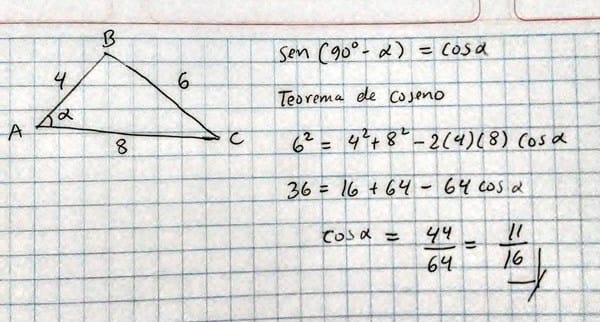 B
4
6
α
A
8
C
sen (90° - α) = cosα
Teorema de coseno
6² = 4² + 8² - 2(4)(8) cosα
36 = 16 + 64 - 64 cosα
cosα = 44/64 = 11/16